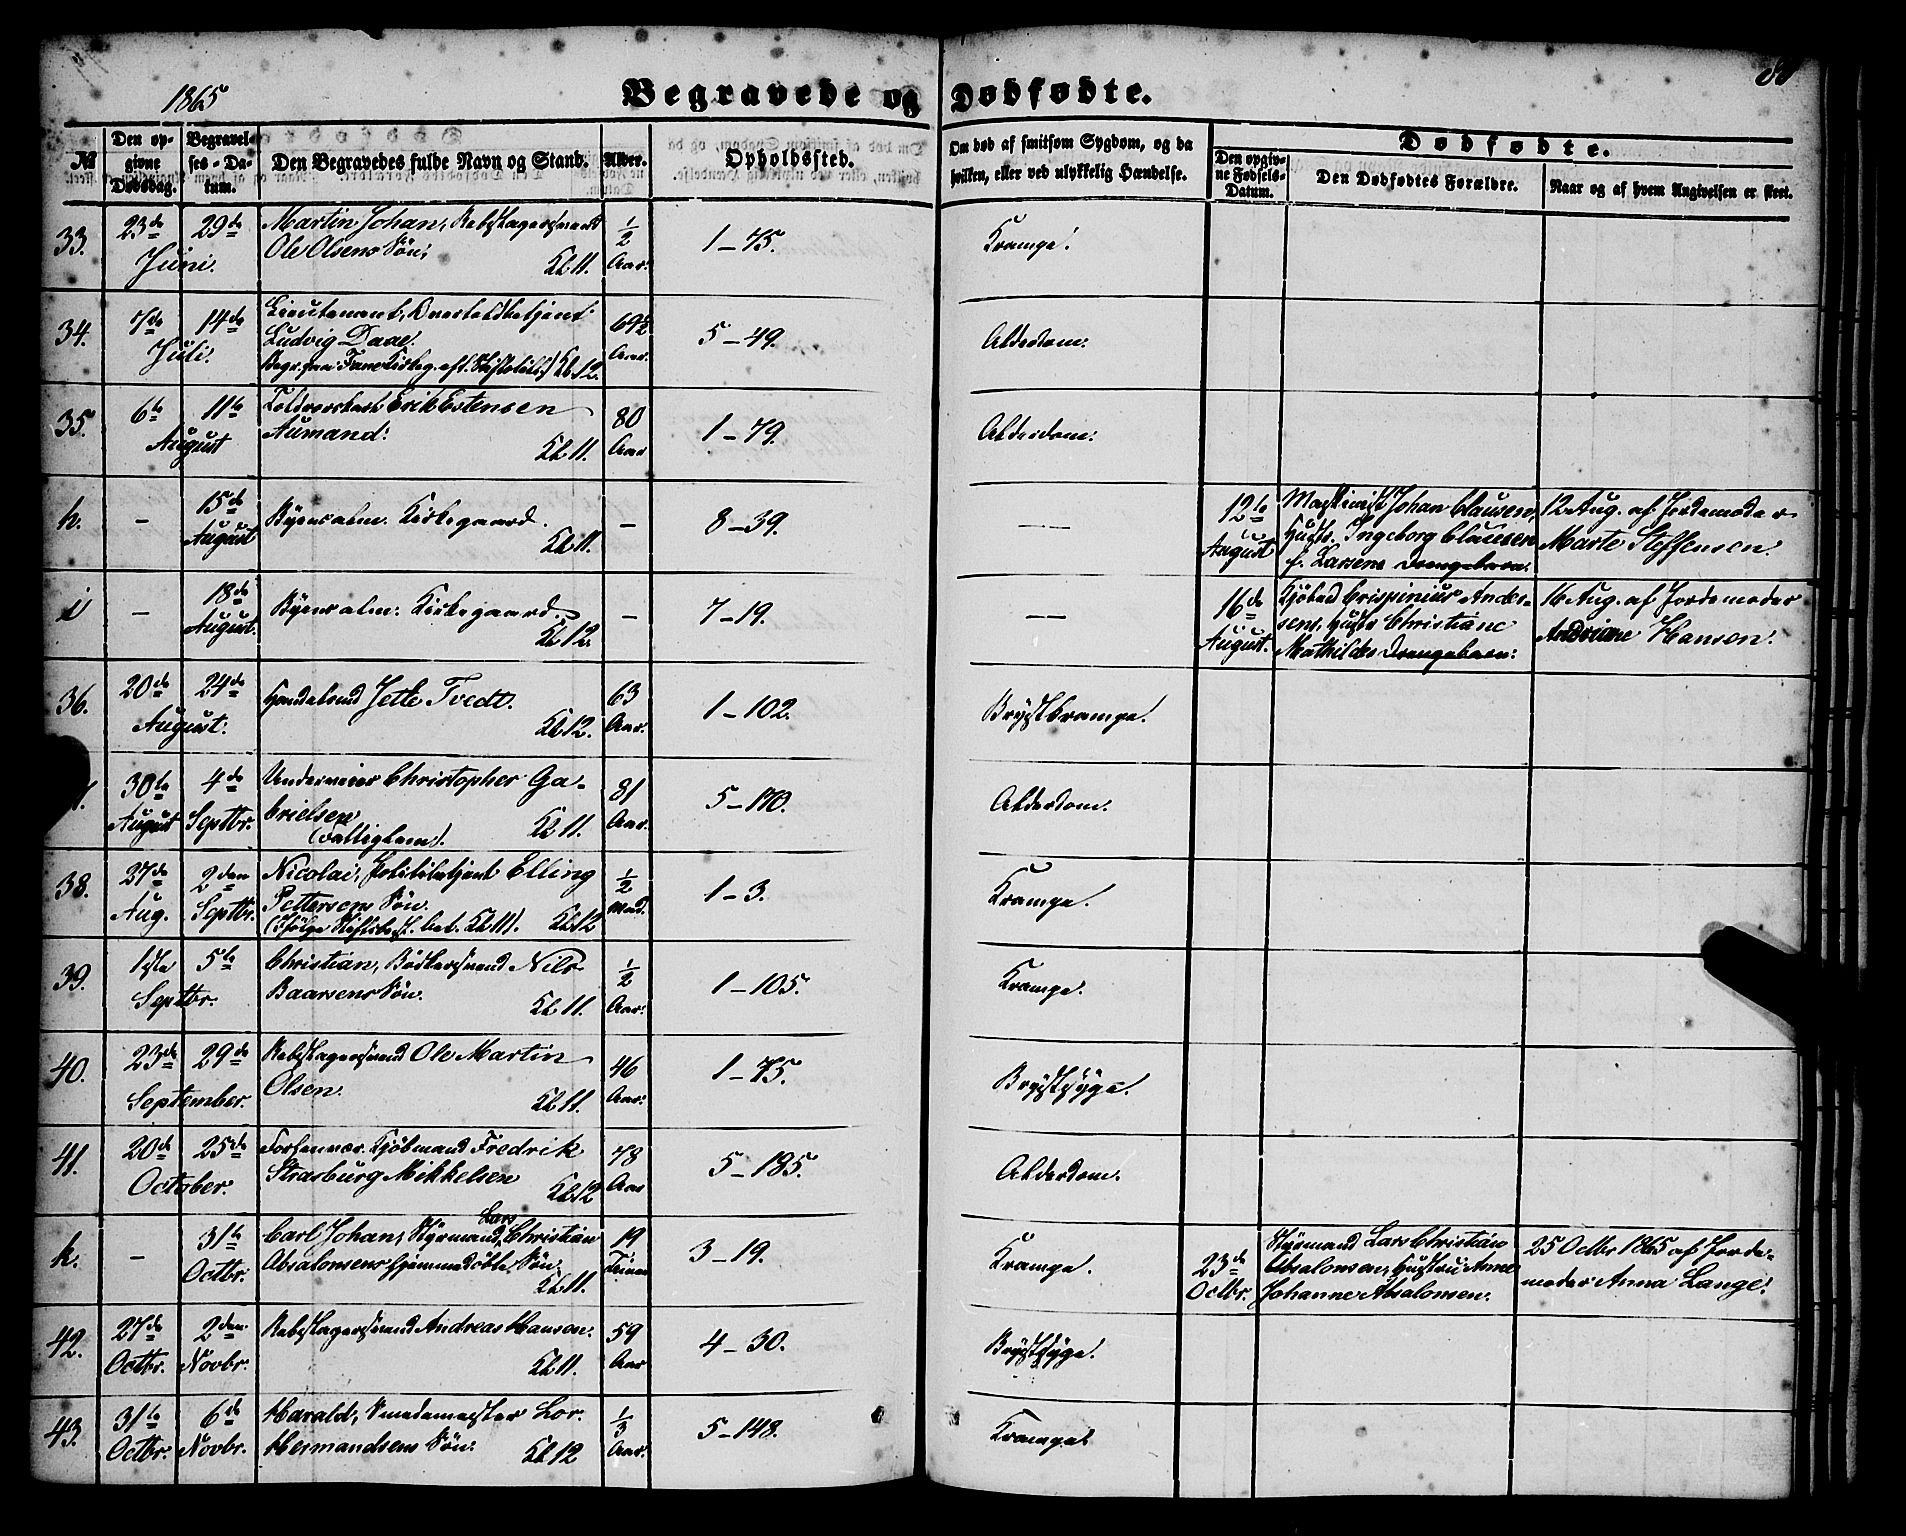 1865
Begravede og Dødfødte.
No
Den opgivne Dødsdag.
Begravelses-Datum.
Den Begravedes fulde Navn og Stand.
Alder.
Opholdssted.
Om død af smitsom Sygdom, og da hvilken, eller ved ulykkelig Hændelse.
Dødfødte.
Den opgivne Fødsels-Datum.
Den Dødfødtes Forældre.
Naar og af hvem Angivelsen er skeet.
33. 23de 29de Juni. Martin Johan, Rebslagersvend
Ole Olsens Søn. Kl. 11. ½ Aar. 1-75. Krampe.
34. 7de 14de Juli. Lieutenant, Overtoldbetjent
Ludvig Daae. 69½ Aar. 5-49. Alderdom.
Kl. 12.
35. 6te 11te August Erik Estensen
Aumand. Kl. 11. 80 Aar 1-79. Alderdom.
h. - 15de August Byens alm. Kirkegaard.
Kl. 11. - 8-39. —
12te August Johan Clausen,
Hustr. Ingeborg Clausen
f. Larsens Drengebarn.
12 Aug. af Jordemoder
Marte Steffensen.
i - 18de August. Byens alm. Kirkegaard.
Kl. 12. - 7-19. —
16de August. Crispinius Ander-
sens, Hustr. Christiane
Mathildes Drengebarn.
16 Aug. af Jordemoder
Andriane Hansen.
36. 20de 24de August. Jette Tvedt.
Kl. 12. 63 Aar. 1-102. Brystkrampe.
30te August 4de Septbr. Christopher Ga-
brielsen Kl. 11. 81 Aar. 5-170. Alderdom.
(Fattiglem).
38. 27de Aug. 2den Septbr. Nicolai, Politibetjent Elling
Pettersens Søn. ½ Maad. 1-3. Krampe.
Kl. 12
39. 1ste 5te Septbr. Christian, Bødkersvend Nils
Baarsens Søn. Kl. 11. ½ Aar. 1-105. Krampe.
40. 23de 29de September. Rebslagersvend Ole Martin
Olsen. Kl. 11. 46 Aar. 1-75. Brystsyge.
41. 20de 25de October. Forhenvær. Kjøbmand Fredrik
Strasburg Mikkelsen Kl. 12 78 Aar 5-185. Alderdom.
k. - 31te Octbr. Carl Johan, Styrmand, Lars Christian
Absalonsens hjemmedøbte Søn.
Kl. 11. 19 Timer 3-19. Krampe.
23de Octbr. Styrmand Lars Christian
Absalonsen, Hustru Anne
Johanne Absalonsen.
25 Octbr 1865 af Jorde-
moder Anna Lange.
42. 27de Octbr. 2den Novbr. Rebslagersvend Andreas Hansen.
Kl. 11. 59 Aar 4-30. Brystsyge.
43. 31te Octbr. 6te Novbr. Harald, Smedemester Lor.
Hermandsens Søn. Kl. 12 ⅓ Aar. 5-148. Krampe.